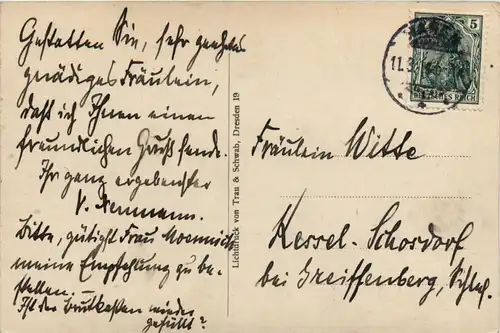 Gestatten Sie, sehr geehrtes
gnädiges Fräulein,
daß ich Ihnen einen
freundlichen Gruß sende.
Ihr ganz ergebenster
V.
Bitte, gütigst Frau
meine Empfehlung zu be-
stellen. —
Ist der Brutkasten wieder
gefüllt?
Lichtdruck von Trau & Schwab, Dresden 19
5
DEUTSCHES REICH
11.3.
Fräulein Witte
Kessel-Schosdorf
bei Greiffenberg, Schles.